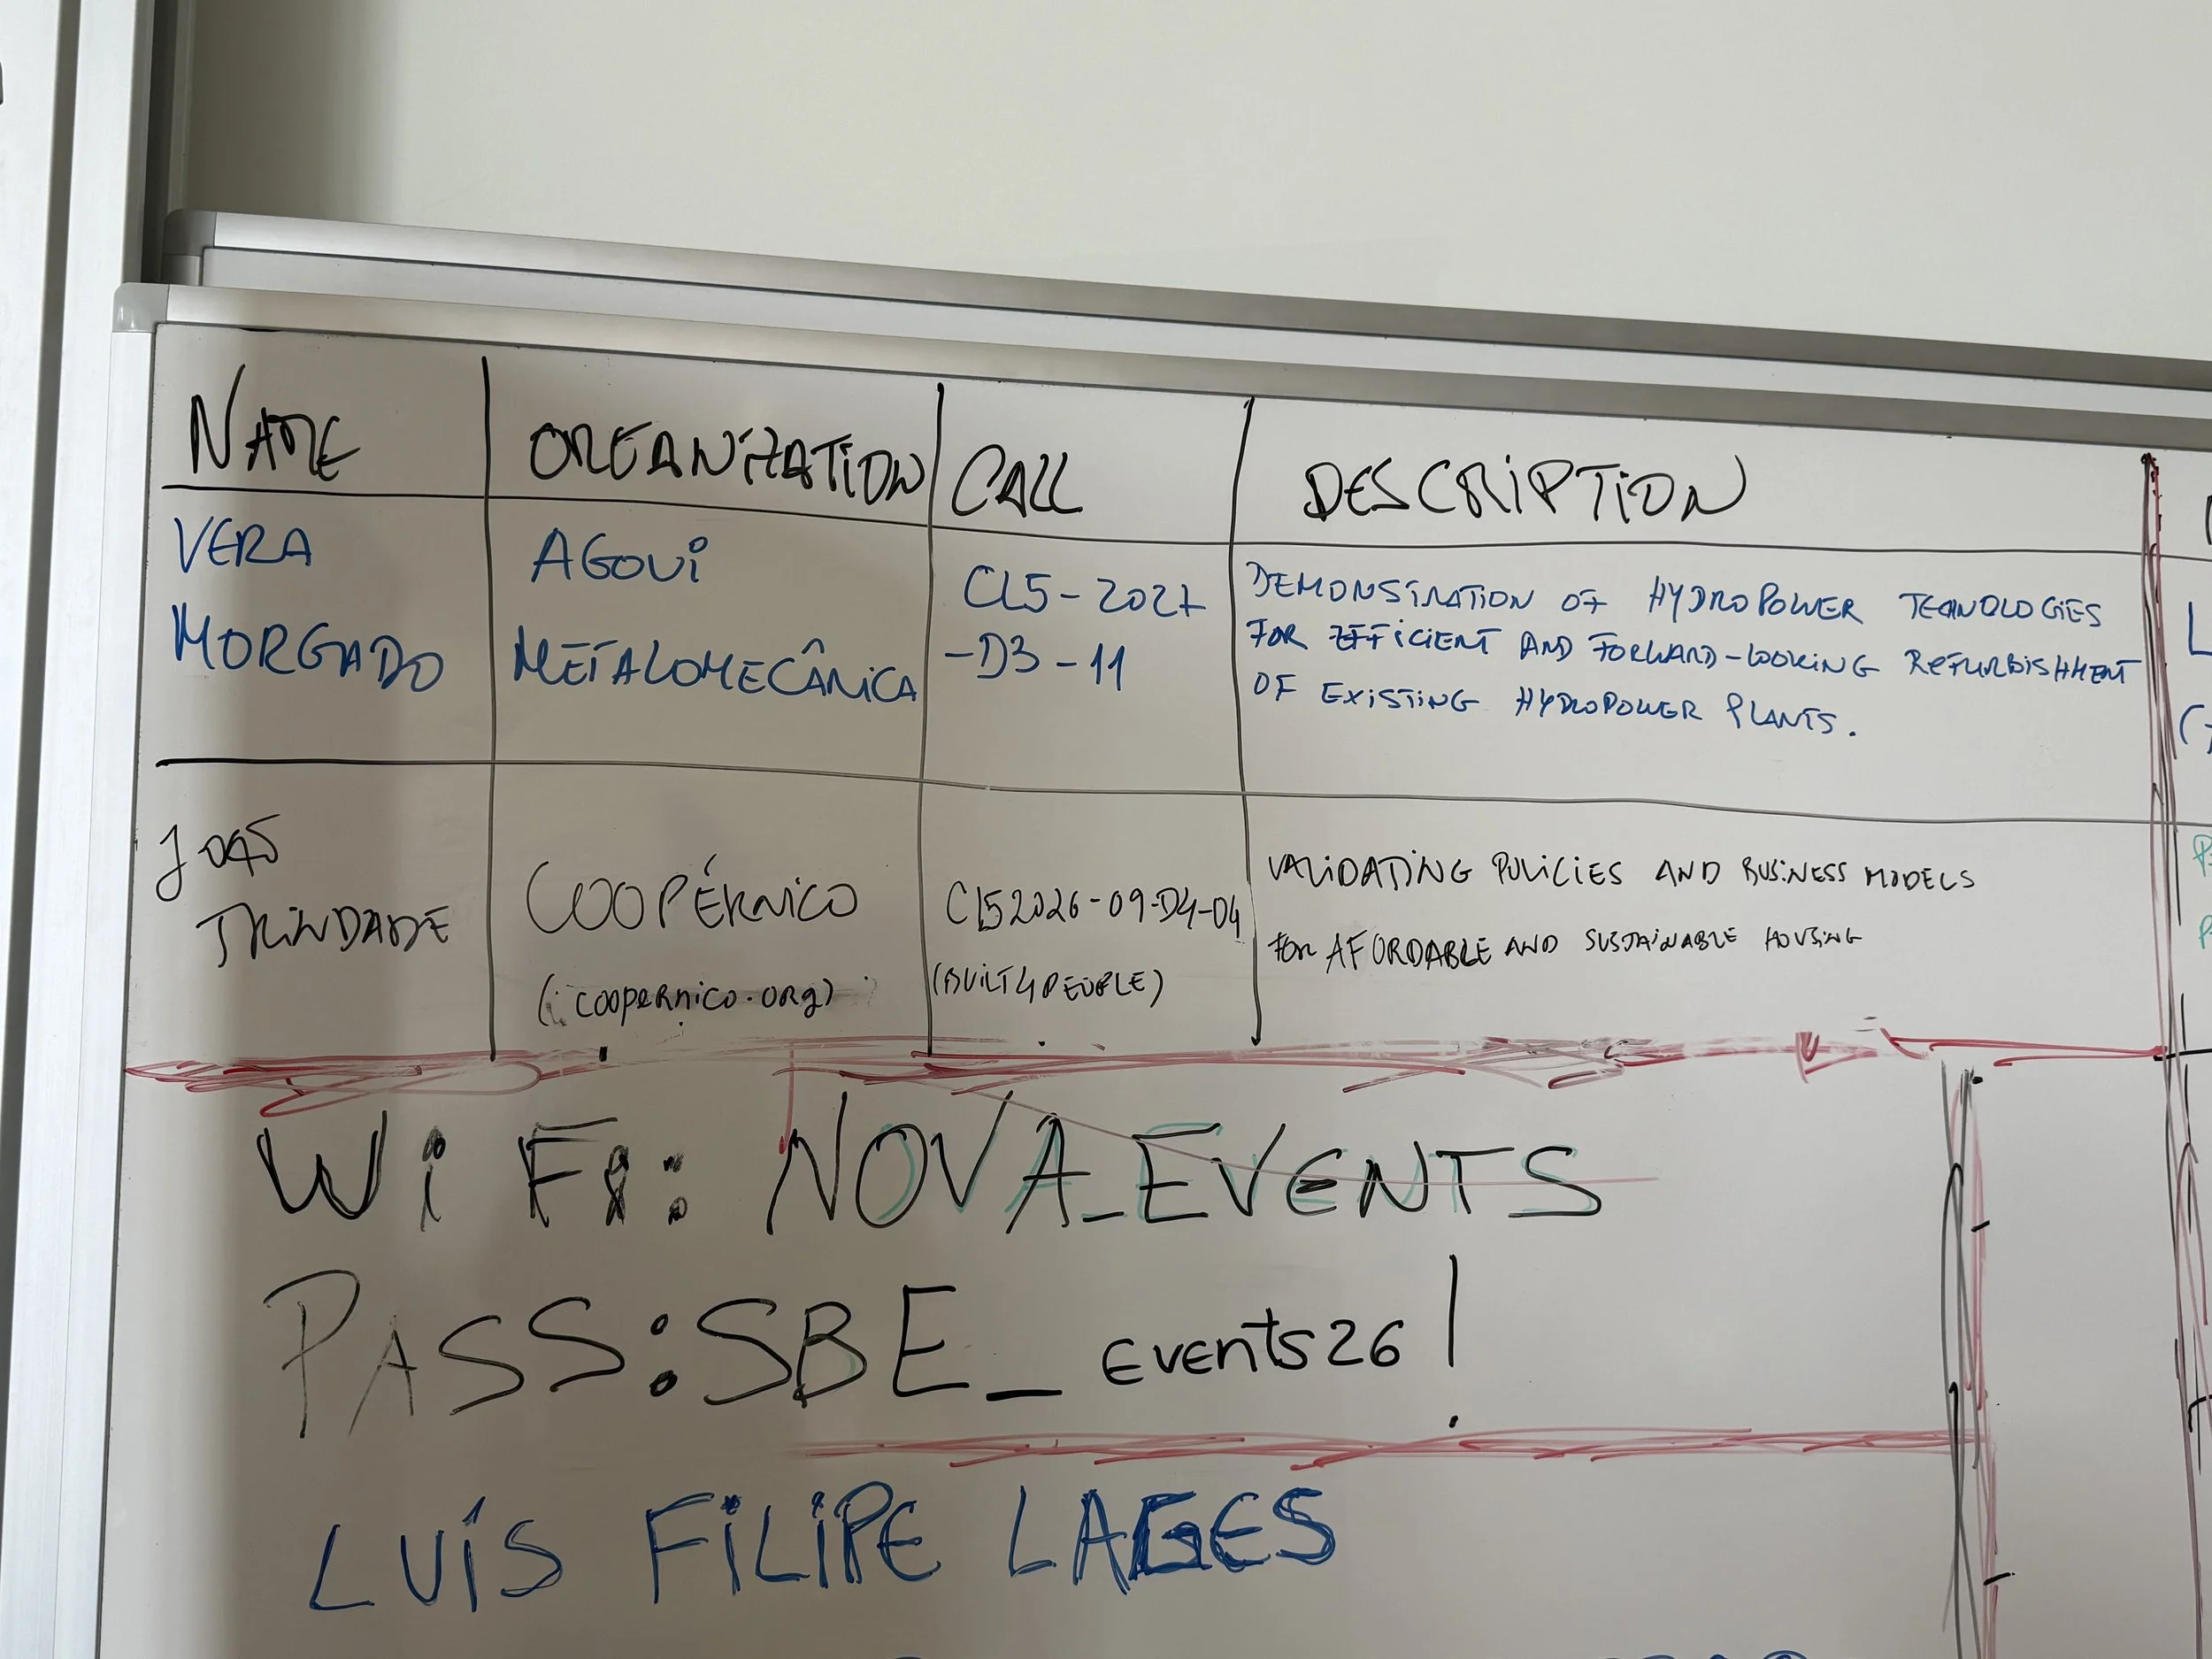 NAME ORGANIZATION CALL DESCRIPTION
VERA MORGADO
AGOVI METALOMECÂNICA
CL5-2027
-D3-11
DEMONSTRATION OF HYDROPOWER TECNOLOGIES
FOR EFFICIENT AND FORWARD-LOOKING REFURBISHMENT
OF EXISTING HYDROPOWER PLANTS.
JOÃO
TRINDADE
COOPÉRNICO
(coopernico.org)
CL52026-09-D4-04
(BUILT4PEOPLE)
VALIDATING POLICIES AND BUSINESS MODELS
FOR AFORDABLE AND SUSTAINABLE HOUSING
WiFi: NOVA_EVENTS
PASS:SBE_events26!
LUÍS FILIPE LAGES